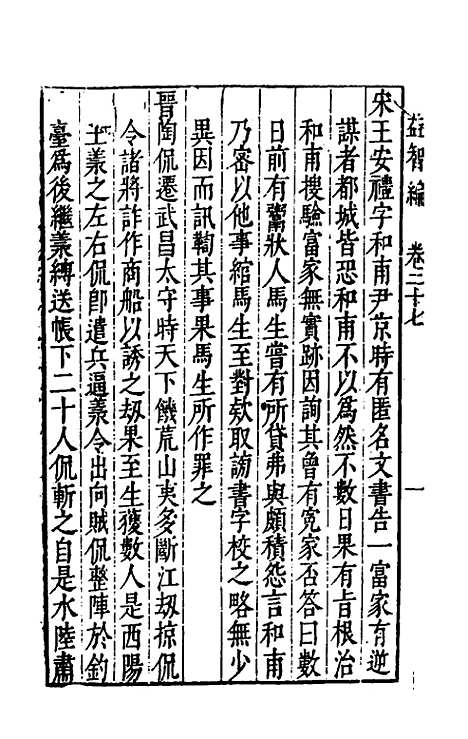 益智編　卷三十七　一
宋王安禮字和甫尹京時有匿名文書告一富家有逆
謀者都城皆恐和甫不以為然不數日果有旨根治
和甫搜驗富家無實跡因詢其曾有冤家否答曰數
日前有鬻狀人馬生嘗有所貸弗與頗積怨言和甫
乃密以他事綰馬生至對欵取謗書字校之略無少
異因而訊鞫其事果馬生所作罪之
晉陶侃遷武昌太守時天下饑荒山夷多斷江刼掠侃
令諸將詐作商船以誘之刼果至生獲數人是西陽
王羕之左右侃卽遣兵逼羕令出向賊侃整陣於釣
臺為後繼羕縛送帳下二十人侃斬之自是水陸肅